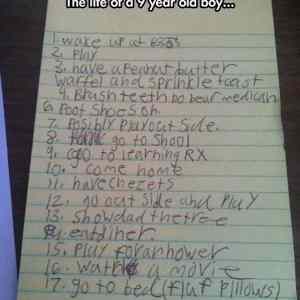 The life of a 9 year old boy...
1. wake up at
2. Play
3. have a Peanut butter
waffel and sprinkle toast
4. Brush teeth do bear medican
6. Poot Shoes on.
7. Posibly Play out Side.
8. go to Shool
9. go to learning RX
10. come home
11. have chezets
12. go out side and Play
13. Show dad the tree
14. eat diner.
15. Play for an hower
16. a movie
17. go to bed (fluf Pillows)